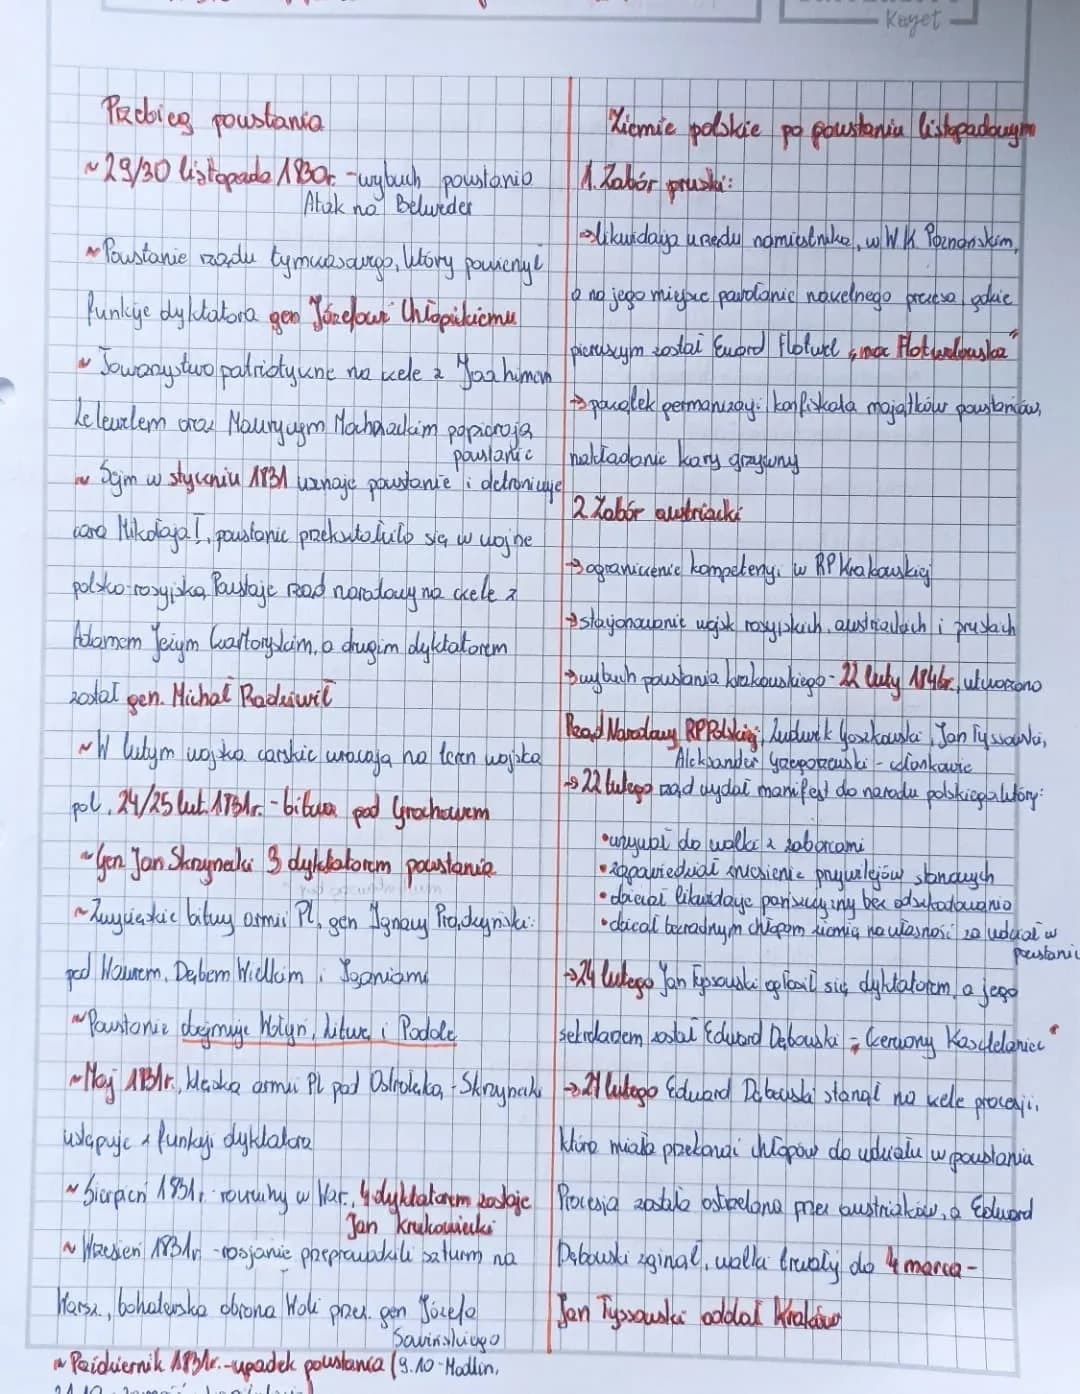 Kajet
Przebieg powstania
~ 29/30 listopada 1830r. - wybuch powstania
Atak na Belweder
~ Powstanie rządu tymczasowego, który powierzył
funkcje dyktatora gen Józefowi Chłopickiemu
~ Towarzystwo patriotyczne na czele z Joachimem
Lelewelem oraz Maurycym Mochnackim popierają
powstanie
~ Sejm w styczniu 1831 uznaje powstanie i detronizuje
cara Mikołaja I, powstanie przekształciło się w wojnę
polsko-rosyjską. Powstaje rząd narodowy na czele z
Adamem Jerzym Czartoryskim, a drugim dyktatorem
został gen. Michał Radziwił
~ W lutym wojska carskie wracają na teren wojska
pol. 24/25 lut. 1831r. - bitwa pod Grochowem
~ Gen Jan Skrzynecki 3 dyktatorem powstania
~ Zwycięskie bitwy armii Pl, gen Ignacy Prądzyński:
pod Wawrem, Dębem Wielkim i Iganiami
~ Powstanie obejmuje Wołyń, Litwę i Podole
~ Maj 1831r., klęska armii Pl pod Ostrołęką, - Skrzynecki
ustępuje z funkcji dyktatora
~ Sierpień 1831r. rozruchy w War., 4 dyktatorem zostaje
Jan Krukowiecki
~ Wrzesień 1831r. - rosjanie przeprowadzili szturm na
Warsz., bohaterska obrona Woli przez gen Józefa
Sowińskiego
~ Październik 1831r. - upadek powstania (9.10 - Modlin,
Ziemie polskie po powstaniu listopadowym
1. Zabór pruski:
→ likwidacja urzędu namiestnika, w W.K. Poznańskim,
a na jego miejsce powołanie naczelnego prezesa, gdzie
pierwszym został Edward Flotwel „noc Flotwelowska"
→ początek germanizacji: konfiskata majątków powstańców,
nakładanie kary grzywny
2 Zabór austriacki
→ ograniczenie kompetencji w RP Krakowskiej
→ stacjonowanie wojsk rosyjskich, austriackich i pruskich
→ wybuch powstania krakowskiego - 22 luty 1846r., utworzono
Rząd Narodowy RP Polskiej, Ludwik Gorzkowski, Jan Tyssowski,
Aleksander Grzegorzewski - członkowie
→ 22 lutego rząd wydał manifest do narodu polskiego, który:
• wzywał do walki z zaborcami
• zapowiedział zniesienie przywilejów stanowych
• obiecał likwidację pańszczyzny bez odszkodowania
• obiecał bezrolnym chłopom ziemię na własność za udział w
powstaniu
→ 24 lutego Jan Tyssowski ogłosił się dyktatorem, a jego
sekretarzem został Edward Dębowski „Czerwony Kasztelanic"
→ 27 lutego Edward Dębowski stanął na czele procesji,
która miała przekonać chłopów do udziału w powstania
Procesja została ostrzelana przez austriaków, a Edward
Dębowski zginął, walki trwały do 4 marca -
Jan Tyssowski oddał Kraków